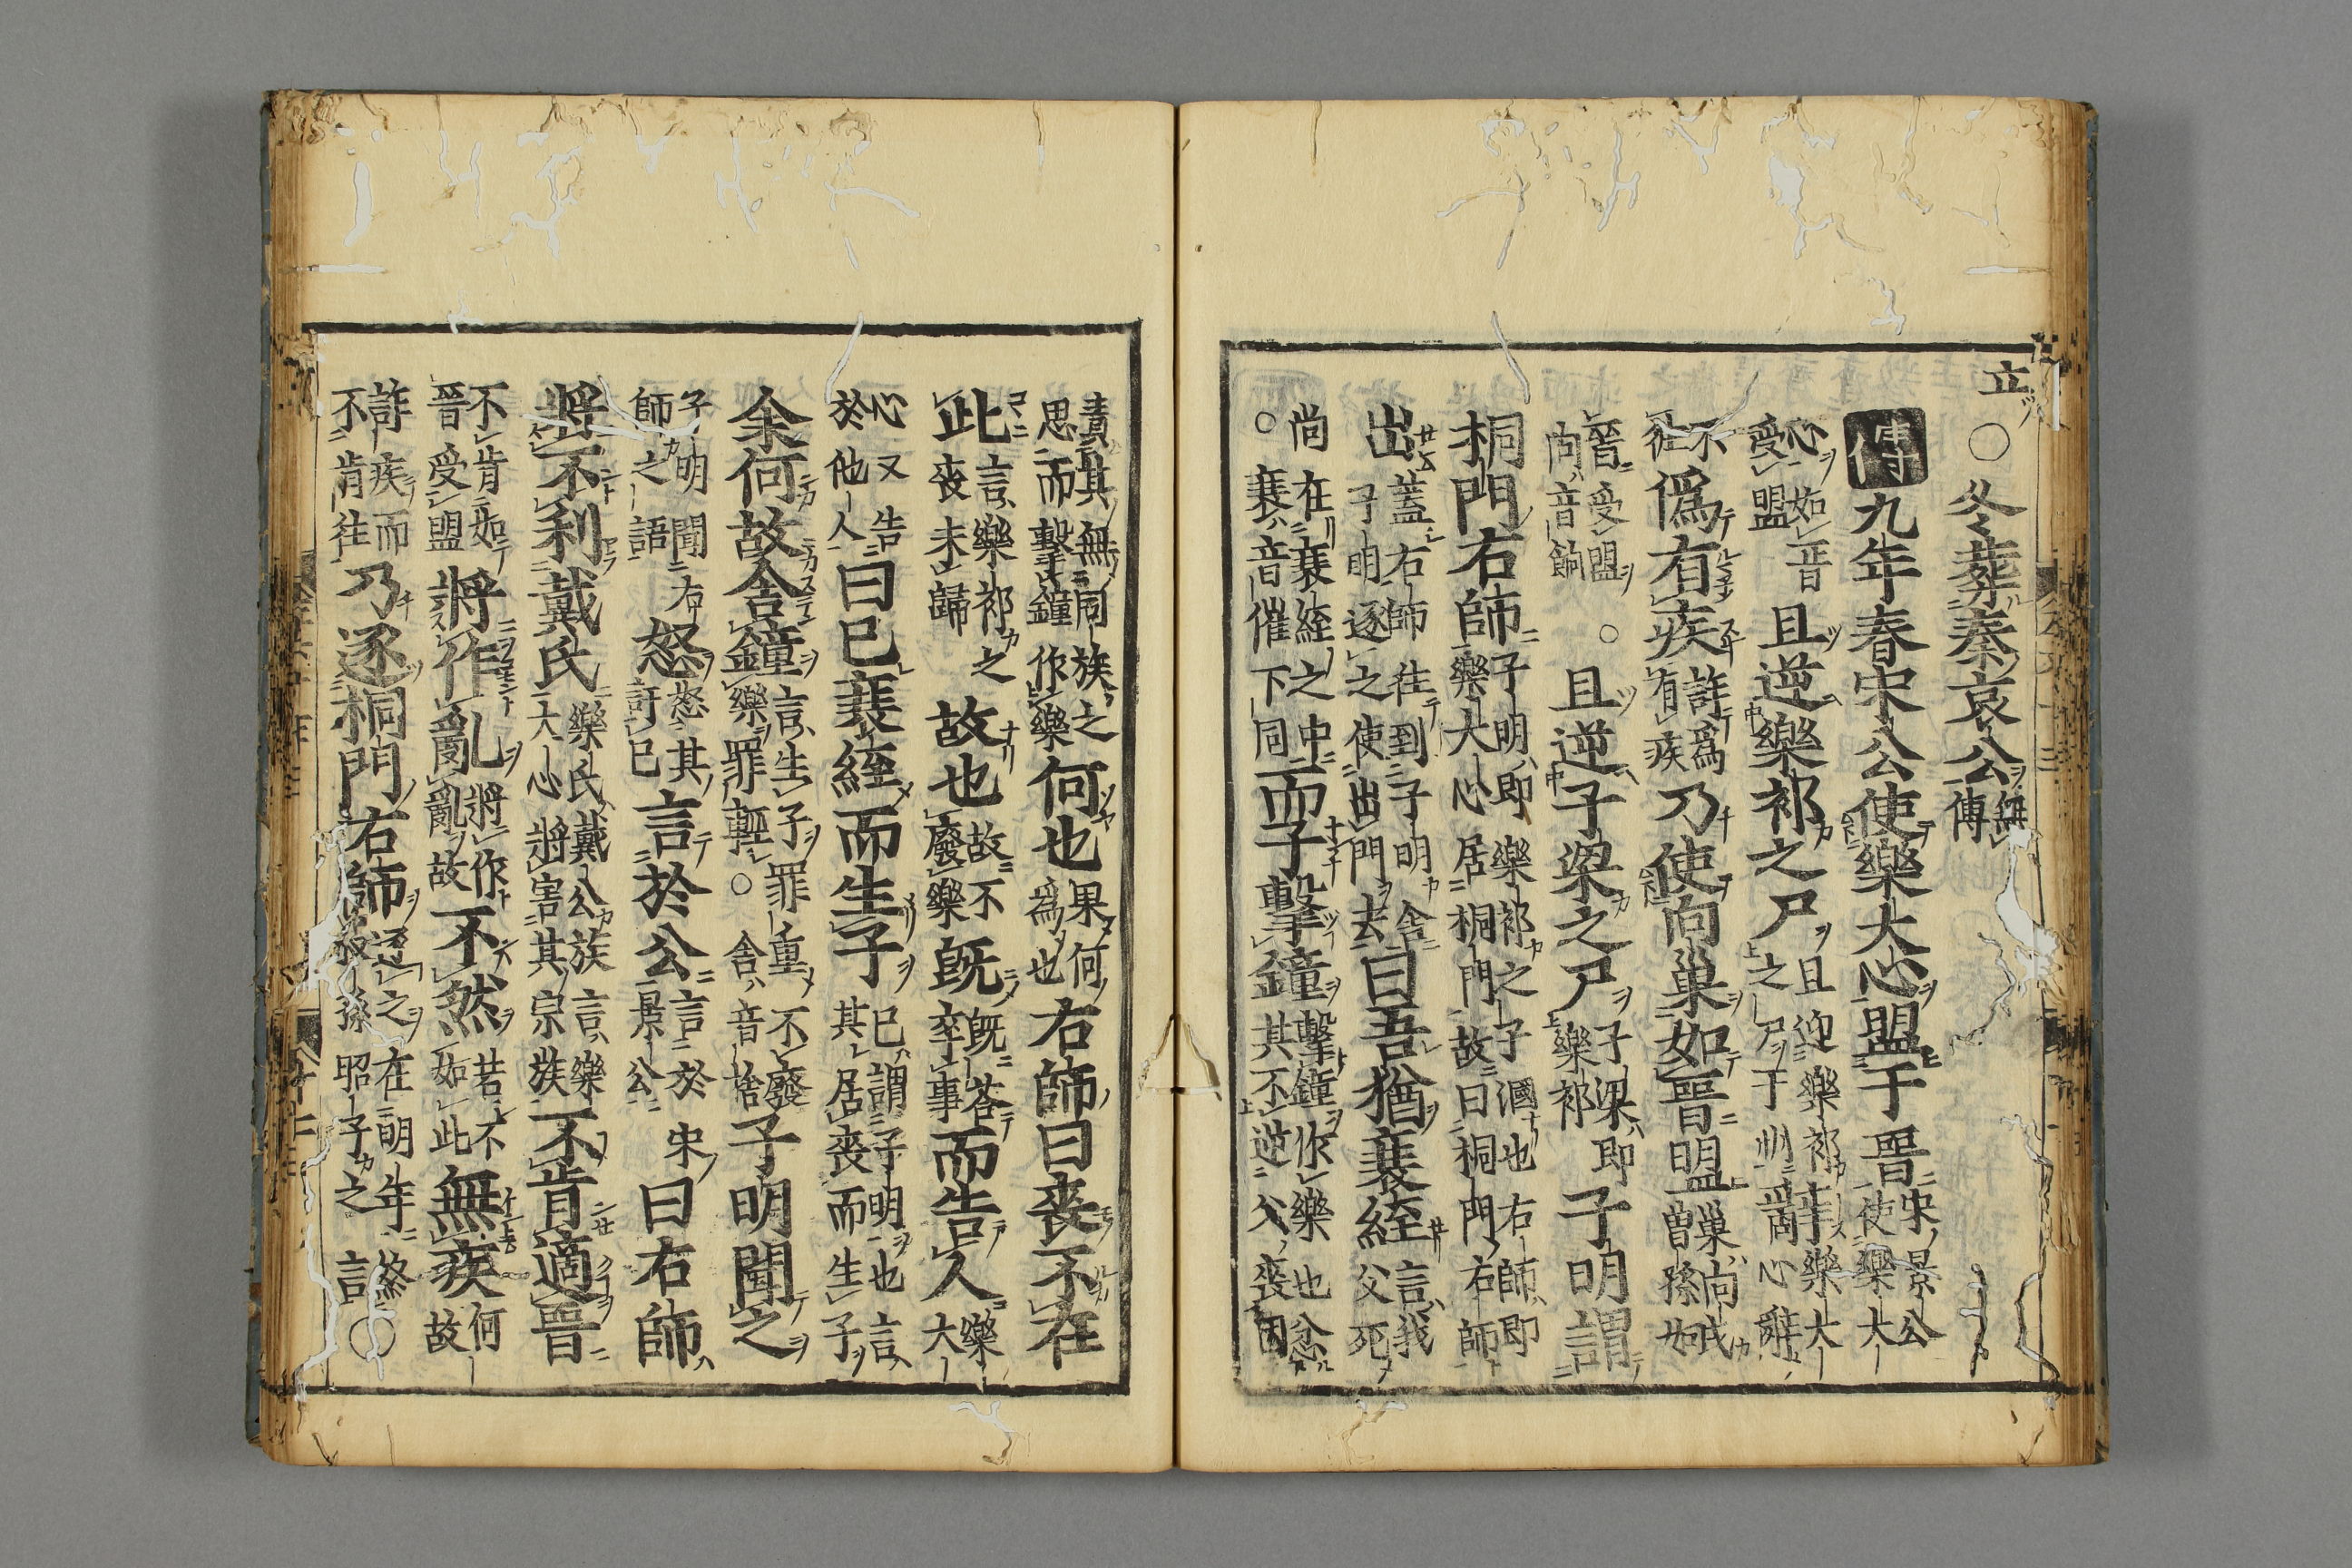 立〇冬葬秦哀公無傳
傳九年春宋公使樂大心盟于晉宋景公使樂大
心如晉受盟且逆樂祁之尸且迎樂祁之尸于州辭樂大心辭
不徃僞有疾許爲有疾乃使向巢如晉盟巢向戌曾孫如
晉受盟向音餉〇且逆子梁之尸子梁即樂祁子明謂
桐門右師子明即樂祁之子溷也右師即樂大心居桐門故曰桐門右師
出蓋右師徃到子明舍子明逐之使出門去曰吾猶衰絰言我父死
尚在衰絰之中〇衰音催下同而子擊鐘擊鐘作樂也忿其不逆父喪因
責其無同族之思而擊鐘作樂何也果何爲也右師曰喪不在
此言樂祁之喪未歸故也故不廢樂既卒既荅卒事而告人樂大
心又告於他人曰已衰絰而生子已謂子明也言其居喪而生子
余何故舍鐘言生子罪重不廢樂罪輕〇舍音捨子明聞之
子明聞右師之語怒怒其訐已言於公言於宋景公曰右師
將不利戴氏樂氏戴公族大心將害其宗族言樂不肯適晉
不肯如晉受盟將作亂將作亂故不然若不如此無疾何故
詐疾而不肯徃乃逐桐門右師逐之在明年叔孫昭子之言終〇